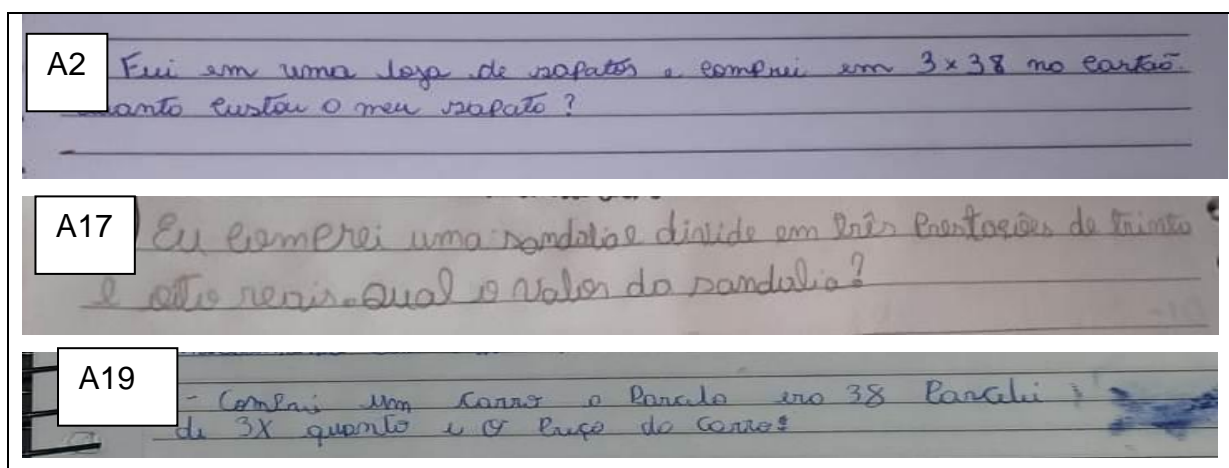 A2
Fui em uma loja de sapatos e comprei em 3x38 no cartão.
uanto custou o meu sapato?
A17
Eu comprei uma sandalia e divide em três Prestações de trinta
e oito reais. Qual o valor da sandalia?
A19
- Comprei um carro a Parcela era 38 Parceli
de 3X quanto é o Preço do carro?